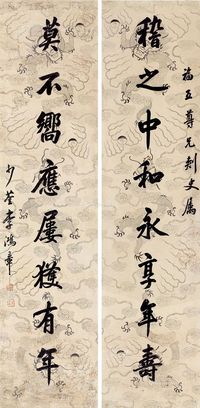 福五尊兄刺史属
稽之中和永享年壽
莫不嚮應屢獲有年
少荃李鴻章